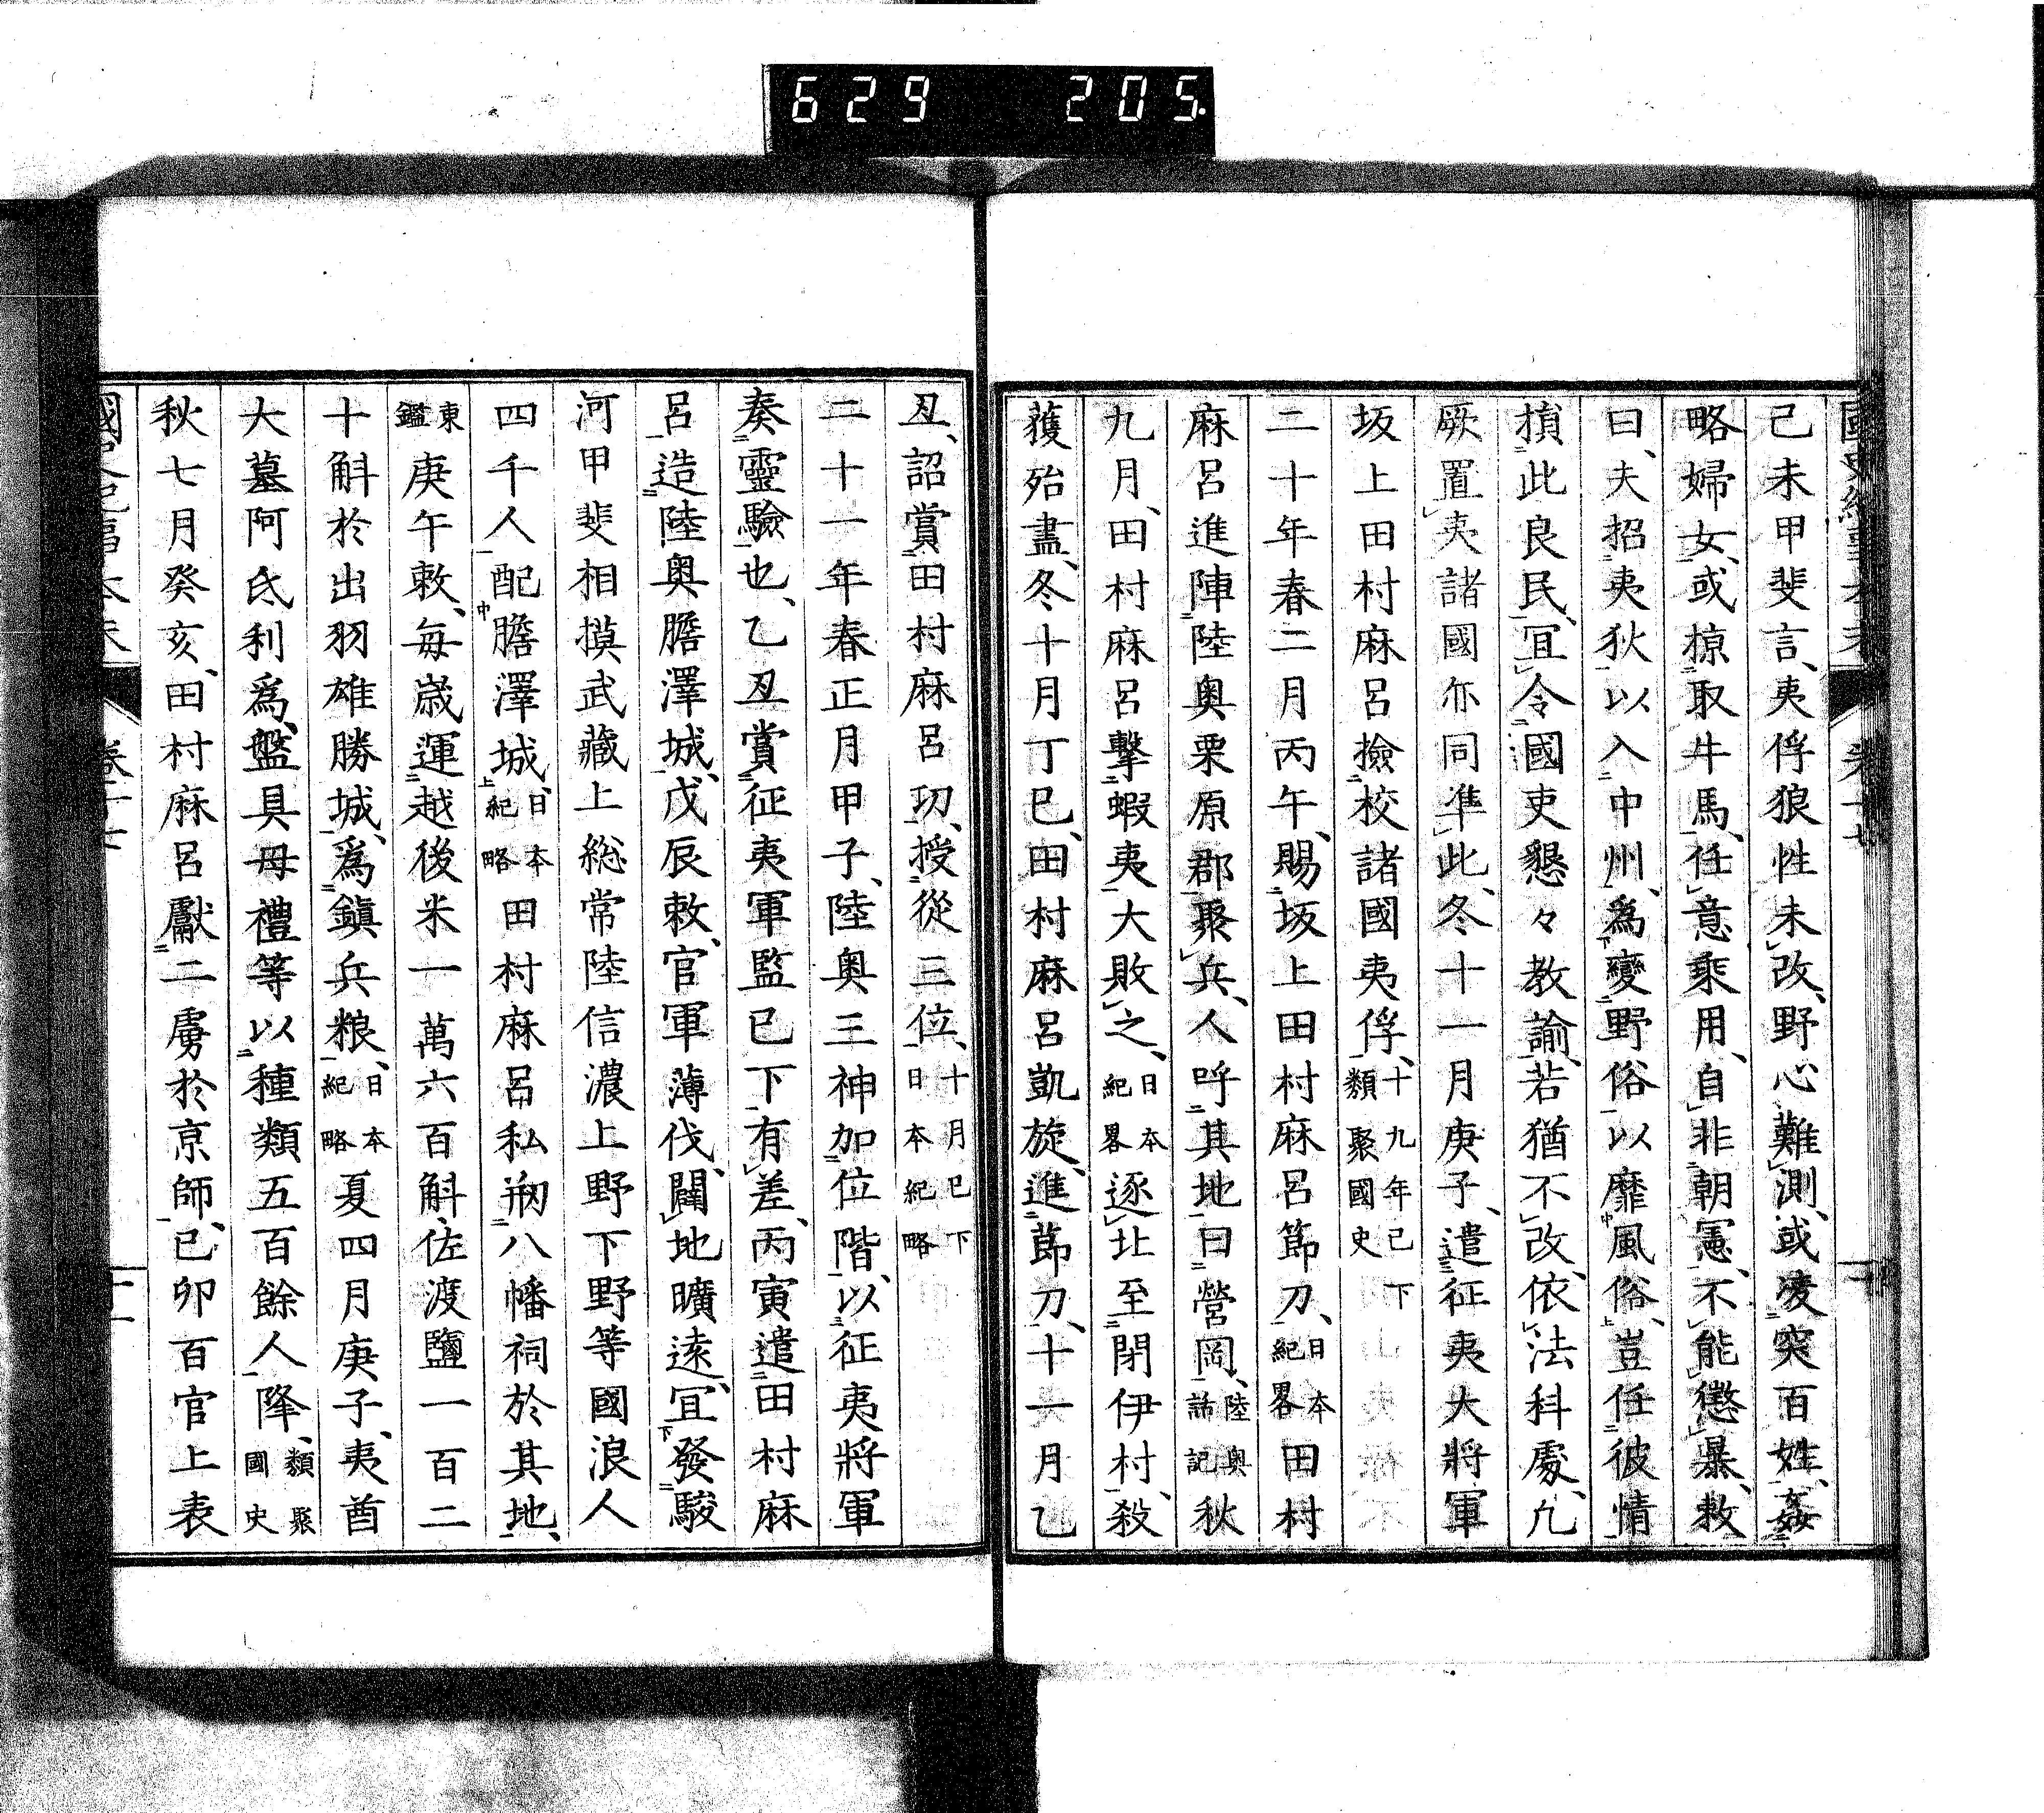 629 205
己未甲斐言、夷俘狼性未改、野心難測、或凌突百姓、姦
略婦女、或掠取牛馬、任意乘用、自非朝憲、不能懲暴、敕
曰、夫招夷狄以入中州、爲變野俗以靡風俗、豈任彼情
損此良民、宜令國吏懇々教諭、若猶不改、依法科處、凢
厥置夷諸國亦同準此、冬十一月庚子、遣征夷大將軍
坂上田村麻呂撿校諸國夷俘、十九年己下類聚國史
二十年春二月丙午、賜坂上田村麻呂節刀、日本紀畧田村
麻呂進陣陸奥栗原郡聚兵、人呼其地曰營岡、陸奥話記秋
九月、田村麻呂擊蝦夷大敗之、日本紀畧逐北至閉伊村、殺
獲殆盡、冬十月丁巳、田村麻呂凱旋、進節刀、十一月乙
丑、詔賞田村麻呂功、授從三位、十月已下日本紀略
二十一年春正月甲子、陸奥三神加位階、以征夷將軍
奏靈驗也、乙丑賞征夷軍監已下有差、丙寅遣田村麻
呂造陸奥膽澤城、戊辰敕、官軍薄伐、闢地曠遠、宜發駿
河甲斐相摸武藏上総常陸信濃上野下野等國浪人
四千人配膽澤城、日本紀略田村麻呂私剏八幡祠於其地、
東鑑庚午敕、每歳運越後米一萬六百斛、佐渡鹽一百二
十斛於出羽雄勝城、爲鎭兵粮、日本紀略夏四月庚子、夷酋
大墓阿氐利爲、盤具母禮等以種類五百餘人降、類聚國史
秋七月癸亥、田村麻呂獻二虜於京師、己卯百官上表